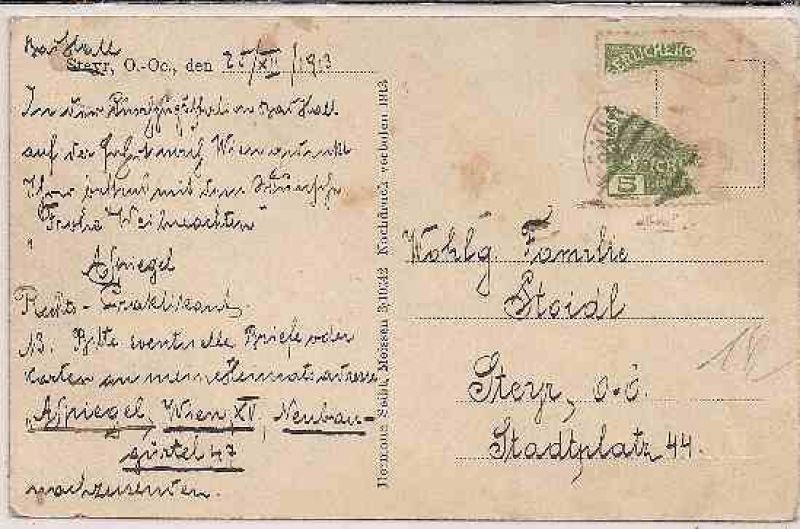 Bad Hall
Steyr, O.-Oe., den 25/XII/1913
In der Durchzugsstation Bad Hall
auf der Fahrt nach Wien gedenkt
Ihrer bestens mit dem Wunsche
"Frohe Weihnachten"
ASpiegel
Rechts-Praktikant.
NB. Bitte eventuelle Briefe oder
Karten an meine Heimatsadresse
"ASpiegel, Wien, XV, Neubau-
gürtel 47
nachzusenden.
Hermann Seibt, Meissen 3,10:42 Nachdruck verboten 1913
5
Wohlg. Familie
Stoidl
Steyr, O.-Ö.
Stadtplatz 44.